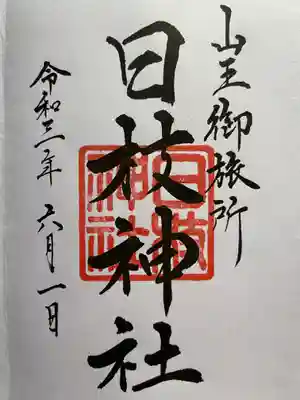 山王御旅所
日枝神社
日枝神社
令和三年 六月一日